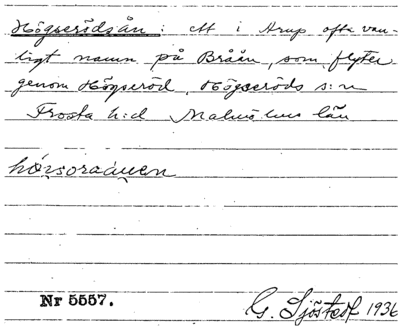 Högserödsån: ett i Arup ofta van-
ligt namn på Bråån, som flyter
genom Högseröd, Högseröds s:n
Frosta h:d Malmöhus län
hörsoraånen
Nr 5557.
G. Sjöstedt 1936